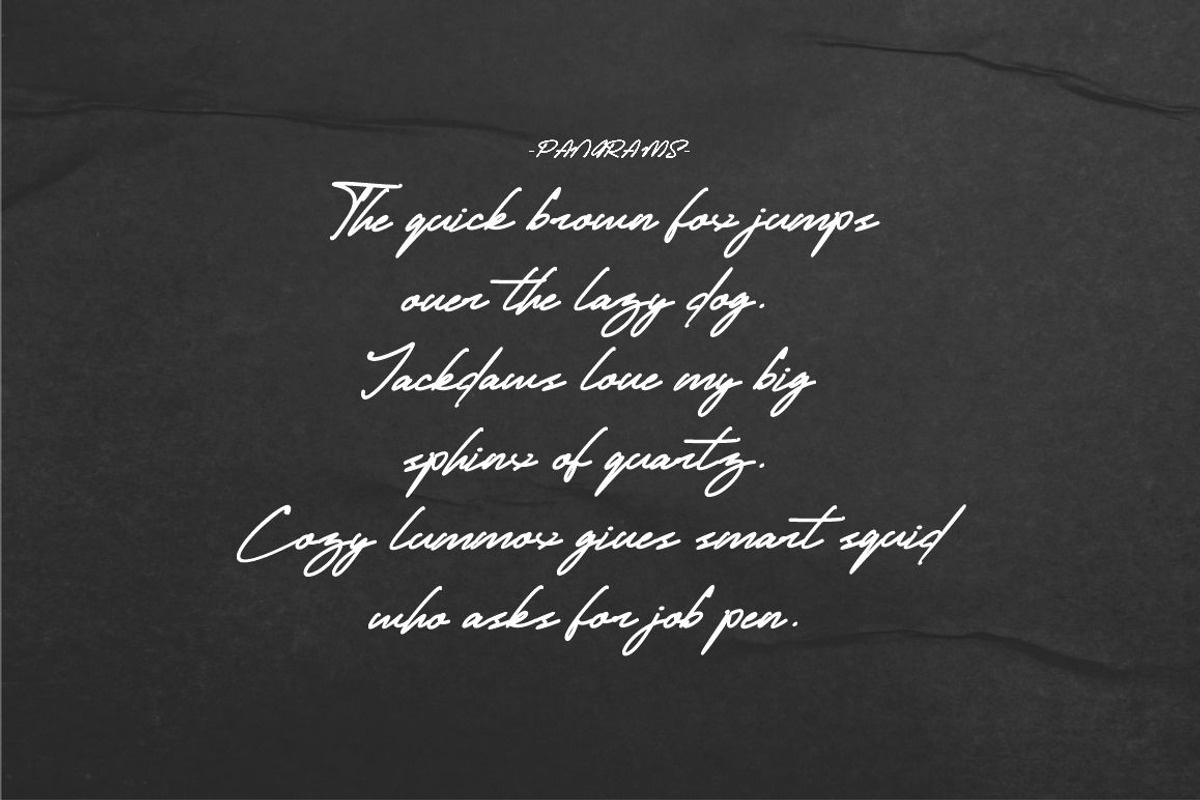 -PANGRAMS-
The quick brown fox jumps
over the lazy dog.
Jackdaws love my big
sphinx of quartz.
Cozy lummox gives smart squid
who asks for job pen.